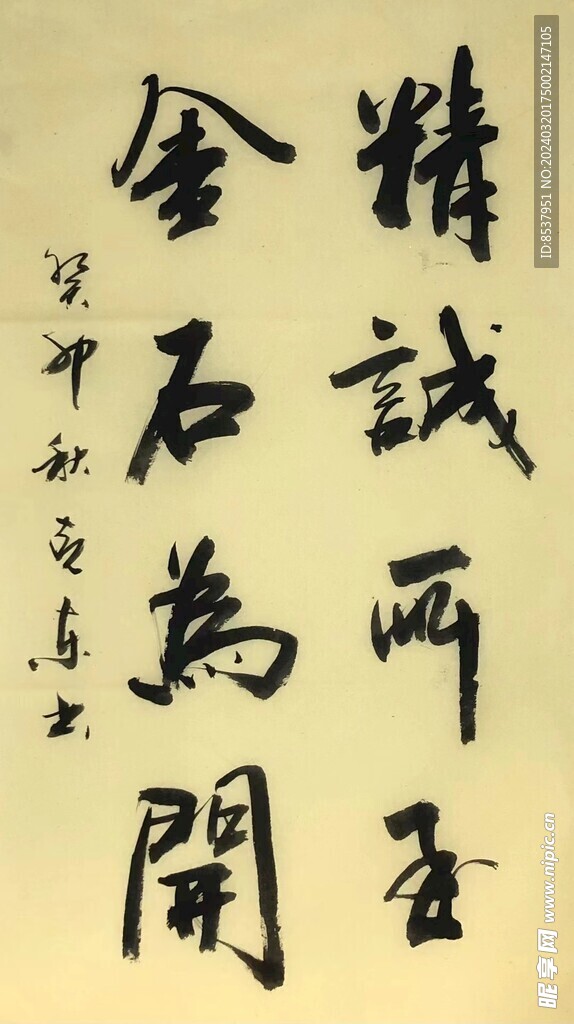 精誠所至
金石為開
癸卯秋
東书
ID:8537951 NO:20240320175002147105
昵享网 www.nipic.cn